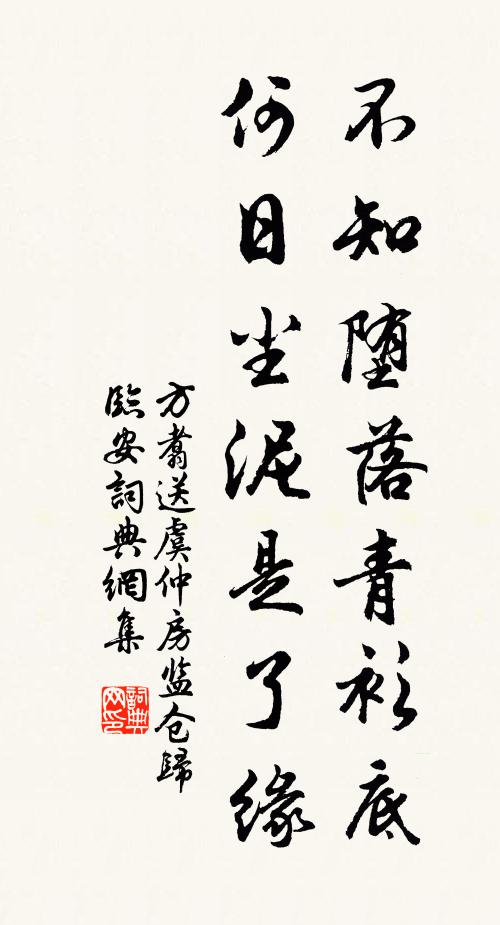 不知堕落青衫底
何日尘泥是了缘
方翥送虞仲房监仓歸
臨安詞典網集
詞典网印